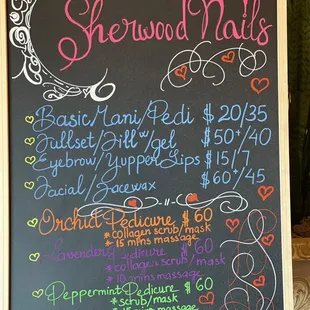 Sherwood Nails
Basic Mani/Pedi $ 20/35
Fullset/Fill w/ gel $ 50+/40
Eyebrow/Yupper Lips $ 15/7
Facial/Facewax $ 60+/45
Orchid Pedicure $ 60
* collagen scrub/mask
* 15 mins massage
Lavender Pedicure $ 60
* collagen scrub/mask
* 15 mins massage
Peppermint Pedicure $ 60
* scrub/mask
* 10 mins massage